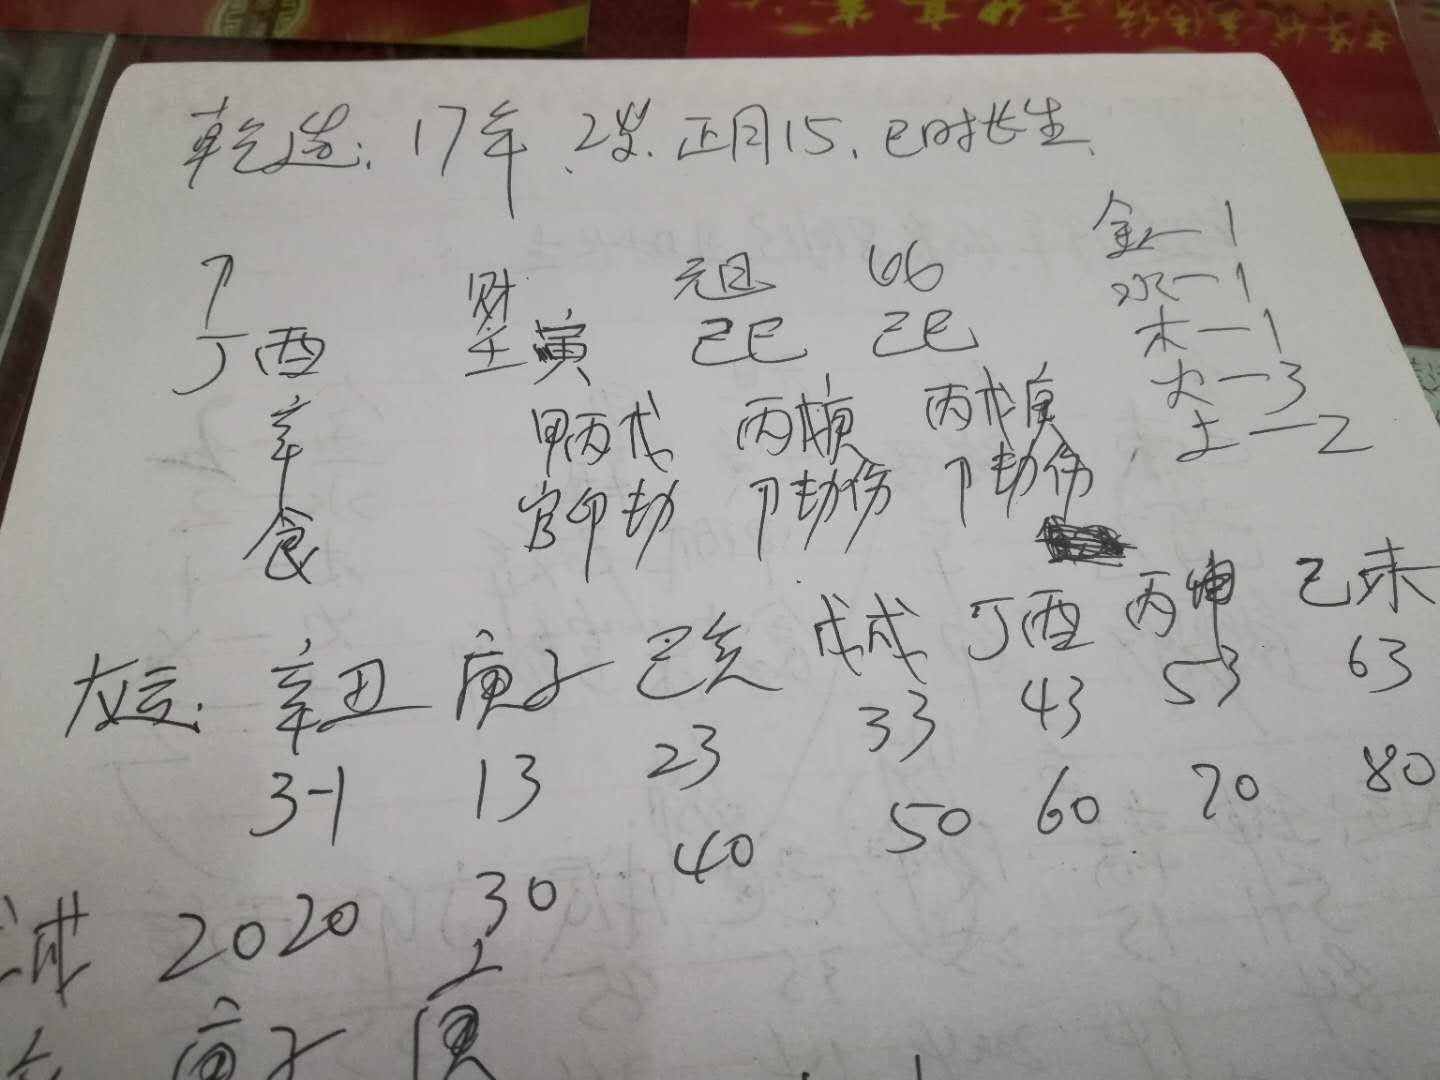 乾造:17年.2岁.正月15.巳时长生.
金一1
水一1
木一1
火一3
土一2
卩 财 元旦 比比
丁酉 壬寅 己巳 己巳
辛 甲丙戊 丙戊庚 丙戊庚
食 官印劫 卩劫伤 卩劫伤
大运: 辛丑 庚子 己亥 戊戌 丁酉 丙申 乙未
3-1 13 23 33 43 53 63
2020 30 40 50 60 70 80
庚子